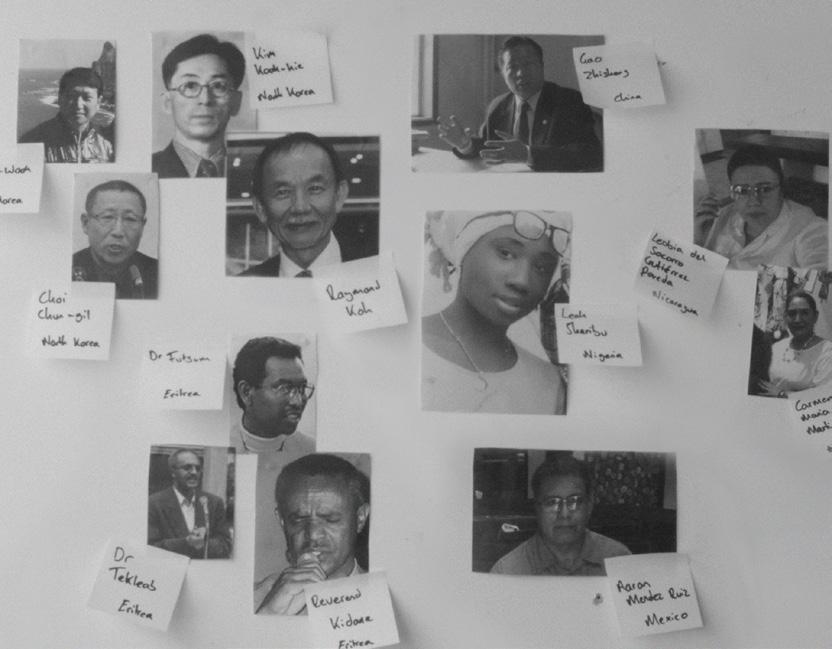 Kim
Kook-kie
North Korea
Gao
Zhisheng
China
Korea
Choi
Chun-gil
North Korea
Raymond
Koh
Leah
Sharibu
Nigeria
del
Socorro
Gutiérrez
Poveda
Nicaragua
Dr
Eritrea
Carmen
Maria
Dr
Tekleab
Eritrea
Reverend
Kidane
Eritrea
Aaron
Mendez Ruiz
Mexico